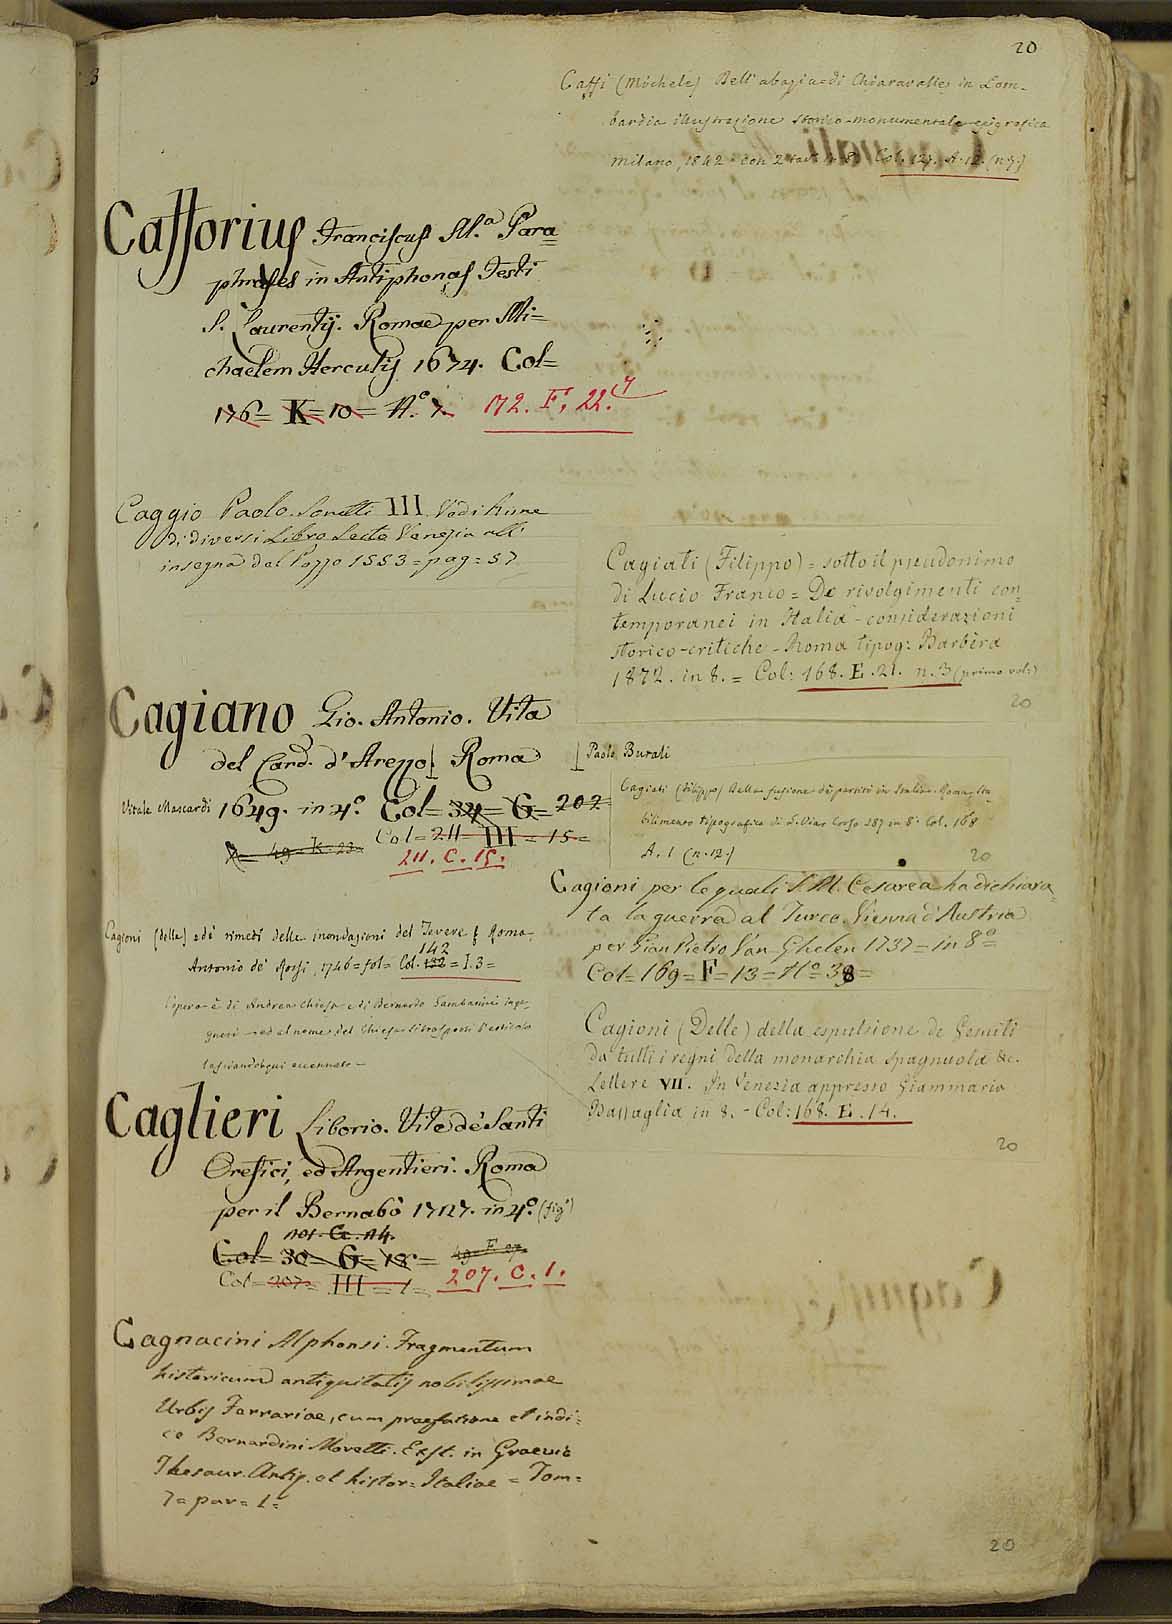 20
Caffi (Michele) Dell' abazia di Chiaravalle in Lom-
bardia illustrazione storico-monumentale-epigrafica
Milano, 1842 - con 2 tav. in 8° Col. 127. A. 12. (n. 7.)
Cafforius Franciscus M.ª Para=
phrases in Antiphonas Festi
S. Laurentij. Romae per Mi=
chaelem Herculis 1674. Col=
176= K=10= N.° 7. 172. F. 22.7
Caggio Paolo. Sonetti III. Vedi Rime
di diversi Libro Sesto Venezia all'
insegna del Pozzo 1553=pag=57
Cagiati (Filippo) = sotto il pseudonimo
di Lucio Franco = De rivolgimenti con=
temporanei in Italia - considerazioni
storico-critiche - Roma tipog: Barbèra
1872. in 8. = Col: 168. E. 21. n. 3 (primo vol:)
20
Cagiano Gio. Antonio. Vita
del Card. d'Arezzo[ Roma
[ Paolo Burali
Vitale Mascardi 1649. in 4.° Col= 34= G= 202
Col= 211= III= 15=
49= K. 23.
211. C. 15.
Cagiati (Filippo) Della fusione dei partiti in Italia. Roma, Sta-
bilimento tipografico di Via Corso 387 in 8° Col. 168
A. 1 (n. 12.)
20
Cagioni per le quali S. M. Cesarea ha dichiara=
ta la guerra al Turco. Vienna d'Austria
per Gian Pietro Van-Ghelen 1737= in 8°
Col= 169= F= 13= N.° 38=
Cagioni (delle) e de' rimedi delle inondazioni del Tevere & Roma.
142
Antonio de' Rossi, 1746= fol= Col. 132= I. 3=
l'opera è di Andrea Chiesa e di Bernardo Gambarini inge-
gneri - ed al nome del Chiesa si trasporti l'articolo
lasciandolo qui accennato -
Cagioni (Delle) della espulsione de Gesuiti
da tutti i regni della monarchia spagnuola &c.
Lettere VII. In Venezia appresso Giammaria
Bassaglia in 8. - Col: 168. E. 14.
20
Caglieri Liborio. Vite de' Santi
Orefici, ed Argentieri. Roma
per il Bernabò 1727. in 4.° (fig.°)
101. Cc. 14.
Col= 30= G= 18=
Col= 207= III= 1= 207. C. 1.
Cagnacini Alphonsi. Fragmentum
historicum antiquitatis nobilissimae
Urbis Ferrariae, cum praefatione et indi=
ce Bernardini Moretti. Exst. in Graevio
Thesaur. Antiq. et histor= Italiae = Tom=
7= par= 1=
20